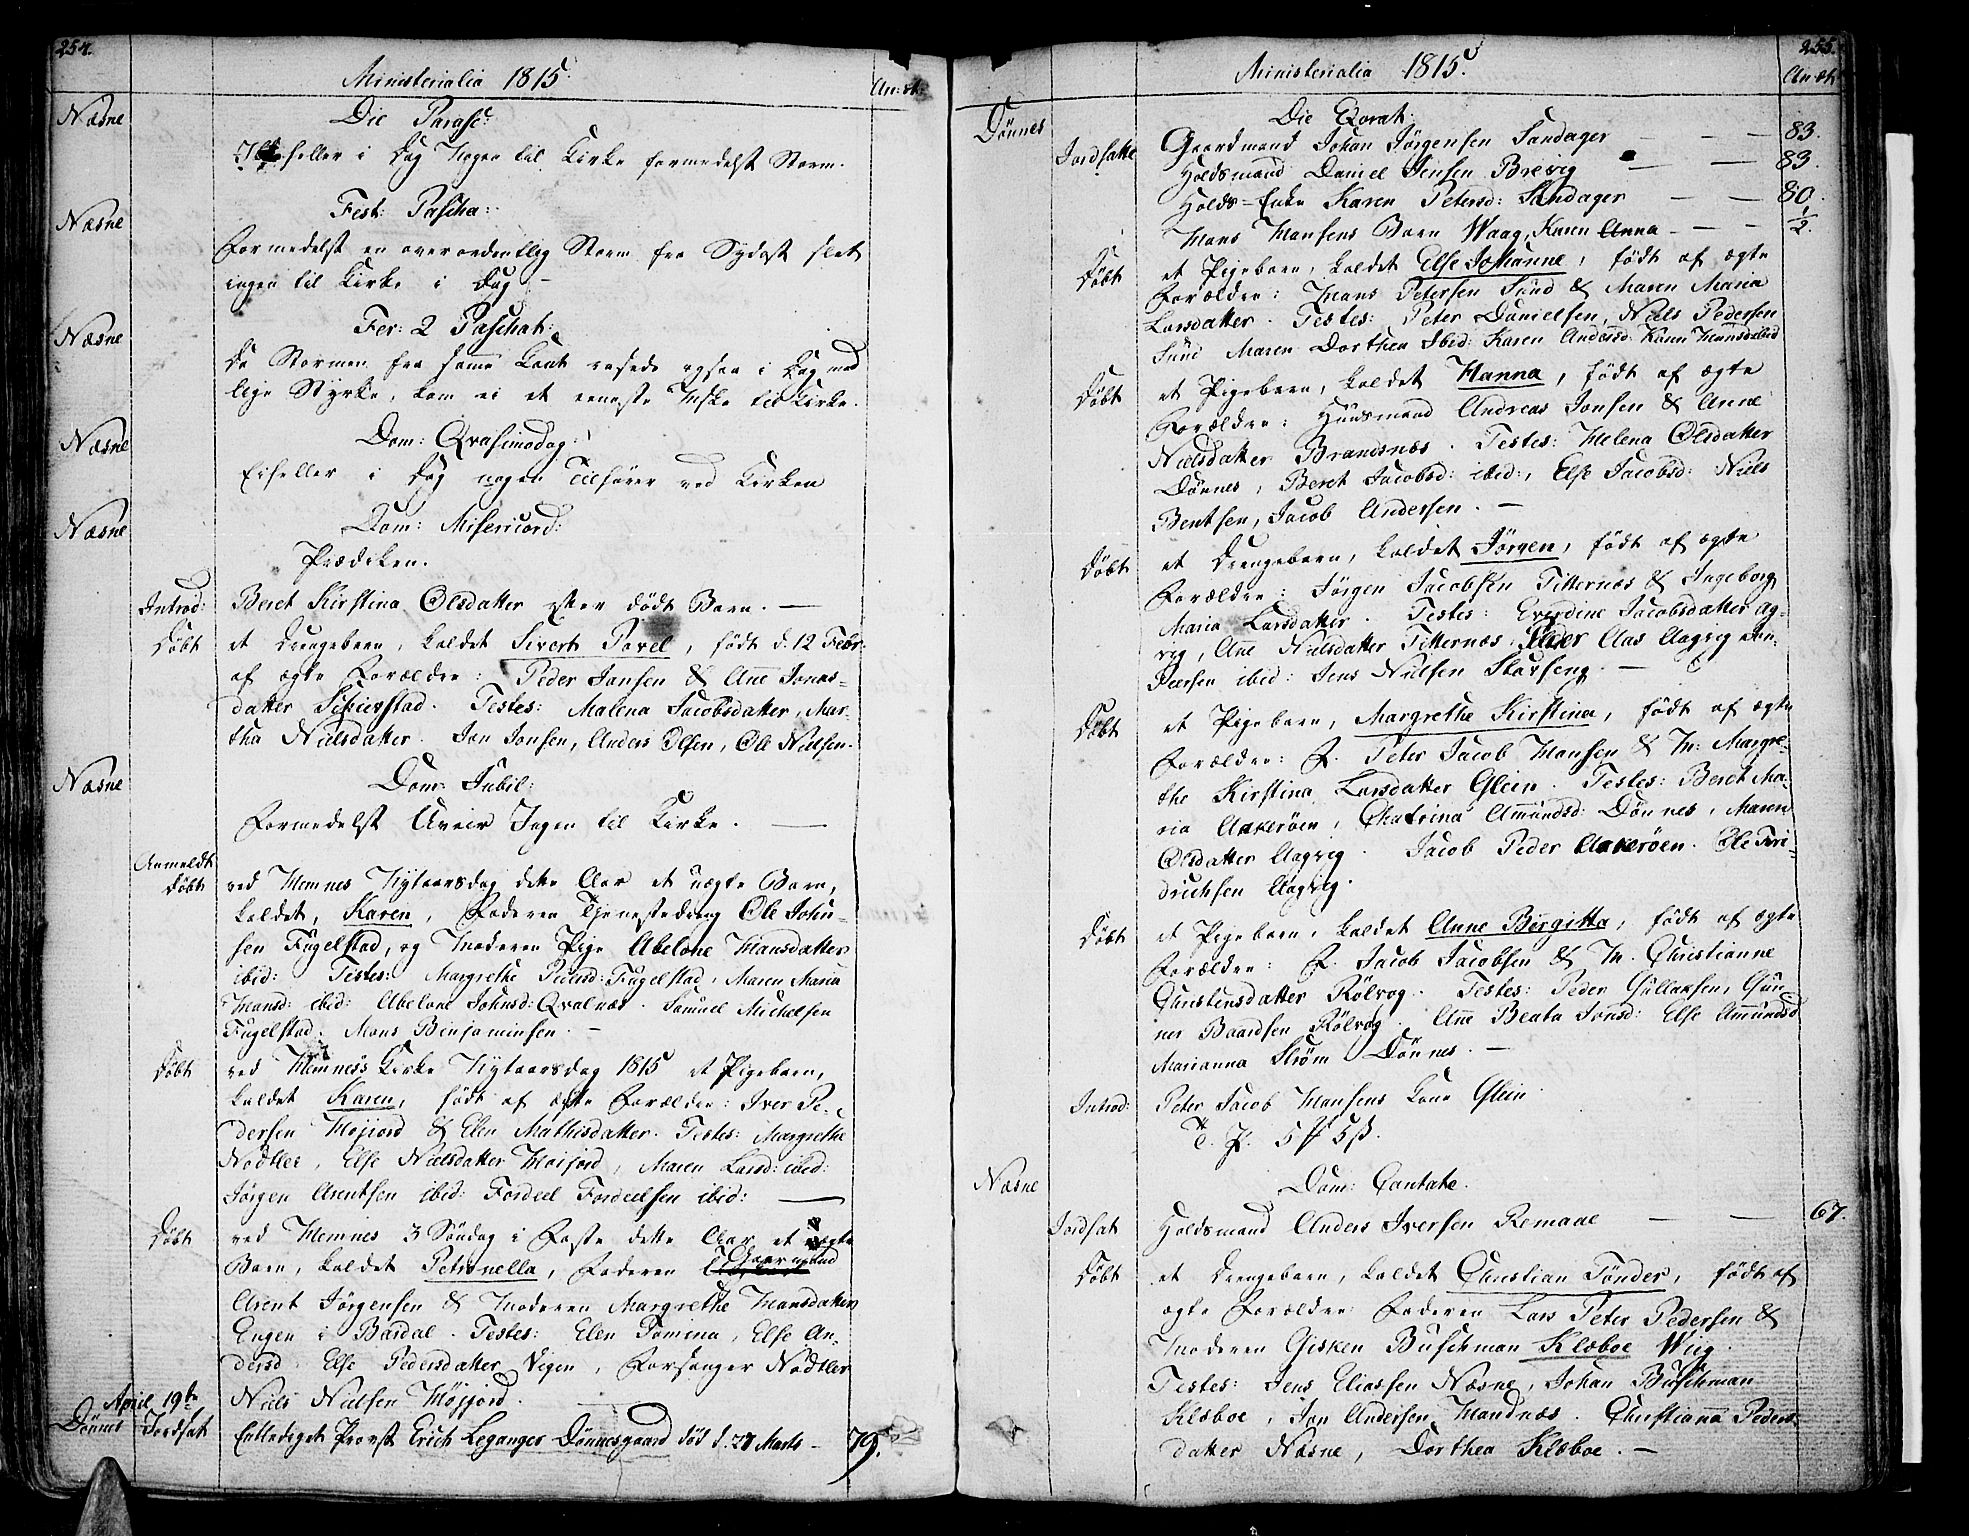 254.
Ministerialia 1815.
An: æt:
Næsne
Die Parasc:
heller i Dag Nogen til Kirke formedelst Storm.
Næsne
Fest: Pascha:
Formedelst en overordentlig Storm fra Sydost slet
ingen til Kirke i Dag –
Næsne
Fer: 2 Paschat:
Da Stormen fra samme Kant rasede ogsaa i Dag med
lige Styrke, kom ei et eneste Mske til Kirke.
Næsne
Dom: Qvasimodog:
Ei heller i Dag nogen Tilhører ved Kirken
Næsne
Dom: Misericord:
Prædiken.
Introd: Beret Kirstina Olsdatter efter dødt Barn. —
Døbt et Drengebarn, kaldet Sivert Povel, født d. 12 Febr.
af ægte Forældre: Peder Jansen & Ane Jonas-
datter . Testes: Malena Jacobsdatter, Mar-
tha Nielsdatter. Jon Jonsen, Anders Olsen, Ole Nielsen.
Næsne
Dom: Jubil:
Formedelst Uveir Ingen til Kirke. —
Anmeldt
Døbt ved Hemnes Nytaarsdag dette Aar et uægte Barn,
kaldet, Karen, Faderen Tjenestedreng Ole John-
sen Fugelstad, og Moderen Pige Abelone Hansdatter
ibid: Testes: Margrethe Pedersd: Fugelstad, Maren Maria
Hansd: ibid: Abelone Johnsd: Qvalnæs. Samuel Michelsen
Fugelstad. Mons Binjaminsen. –
Døbt ved Hemnes's Kirke Nytaarsdag 1815 et Pigebarn,
kaldet Karen, født af ægte Forældre: Iver Pe-
dersen Højjord & Elen Mathisdatter. Testes: Margrethe
Nødtler, Else Nielsdatter Højjord, Maren Larsd: ibid:
Jørgen Arentsen ibid: Fordeel Fordeelsen ibid: —
Døbt ved Hemnes 3 Søndag i Faste dette Aar et ægte
Barn, kaldet Petronella, Faderen Gaarmand
Arent Jørgensen & Moderen Margrethe Hansdatter
Engen i Bardal. Testes: Elen Tomina, Else An-
dersd Else Pedersdatter Vigen, Forsanger Nødtler
Niels Nielsen Højjord.
April 19de
Dønnes Jordsat Entlediget Provst Erich Leganger Dønnesgaard død d. 27 Marts – 79.
255.
Ministerialia 1815.
An: æt:
Dønnes
Die Rorat:
Jordsatte Gaardmand Johan Jørgensen Sandager — — 83.
Holdsmand Daniel Jensen Brevig — — 83.
Holds-Enke Karen Petersd: Sandager — — 80.
Hans Hansens Barn Waag, Karen Anna — — 1/2.
Døbt et Pigebarn, kaldet Else Johanne, født af ægte
Forældre: Hans Petersen Sund & Maren Maria
Larsdatter. Testes: Peter Danielsen, Niels Pedersen
Sund Maren Dorthea Ibid: Karen Andersd: Karen Hansd: ibid
Døbt et Pigebarn, kaldet Hanna, født af ægte
Forældre: Huusmand Andreas Jonsen & Anne
Nielsdatter Brandsnæs. Testes: Helena Olsdatter
Dønnes, Beret Jacobsd: ibid:, Else Jacobsd: Niels
Bentsen, Jacob Andersen. —
Døbt et Drengebarn, kaldet Jørgen, født af ægte
Forældre: Jørgen Jacobsen Titternæs & Ingeborg
Maria Larsdatter. Testes: Everdine Jacobsdatter Ag-
vig, Ane Nielsdatter Titternæs, Peder Aas Aagvig
Peersen ibid: Jens Nielsen Skarseng. —
Døbt et Pigebarn, Margrethe Kirstina, født af ægte
Forældre: F. Peter Jacob Hansen & M: Margre-
the Kirstina Larsdatter Glein. Testes: Beret Ma-
ria Aakerøen, Chatrina Amundsd: Dønnes, Maren
Olsdatter Aagvig. Jacob Peder Aakerøen. Ole Frri-
drichsen Aagvig.
Døbt et Pigebarn, kaldet Anne Birgitta, født af ægte
Forældre: F. Jacob Jacobsen & M. Christianne
Christensdatter Rølvog. Testes: Peder Gullaksen, Gun-
ner Baardsen Rølvog. Ane Beata Jonsd: Else Amundsd
Marianna Strøm Dønnes. —
Introd: Peter Jacob Hansens Kone Glein
T. P. 5 5ß.
Næsne
Dom: Cantate.
Jordsat Holdsmand Anders Iversen Remaae — — 67.
Døbt et Drengebarn, kaldet Christian Tønder, født af
ægte Forældre: Faderen Lars Peter Pedersen &
Moderen Gisken Buschman Klæboe Wiig.
Testes: Jens Eliassen Næsne, Johan Buschman
Klæboe, Jon Andersen Handnæs. Christianna Peders-
datter Næsne, Dorthea Klæboe. —